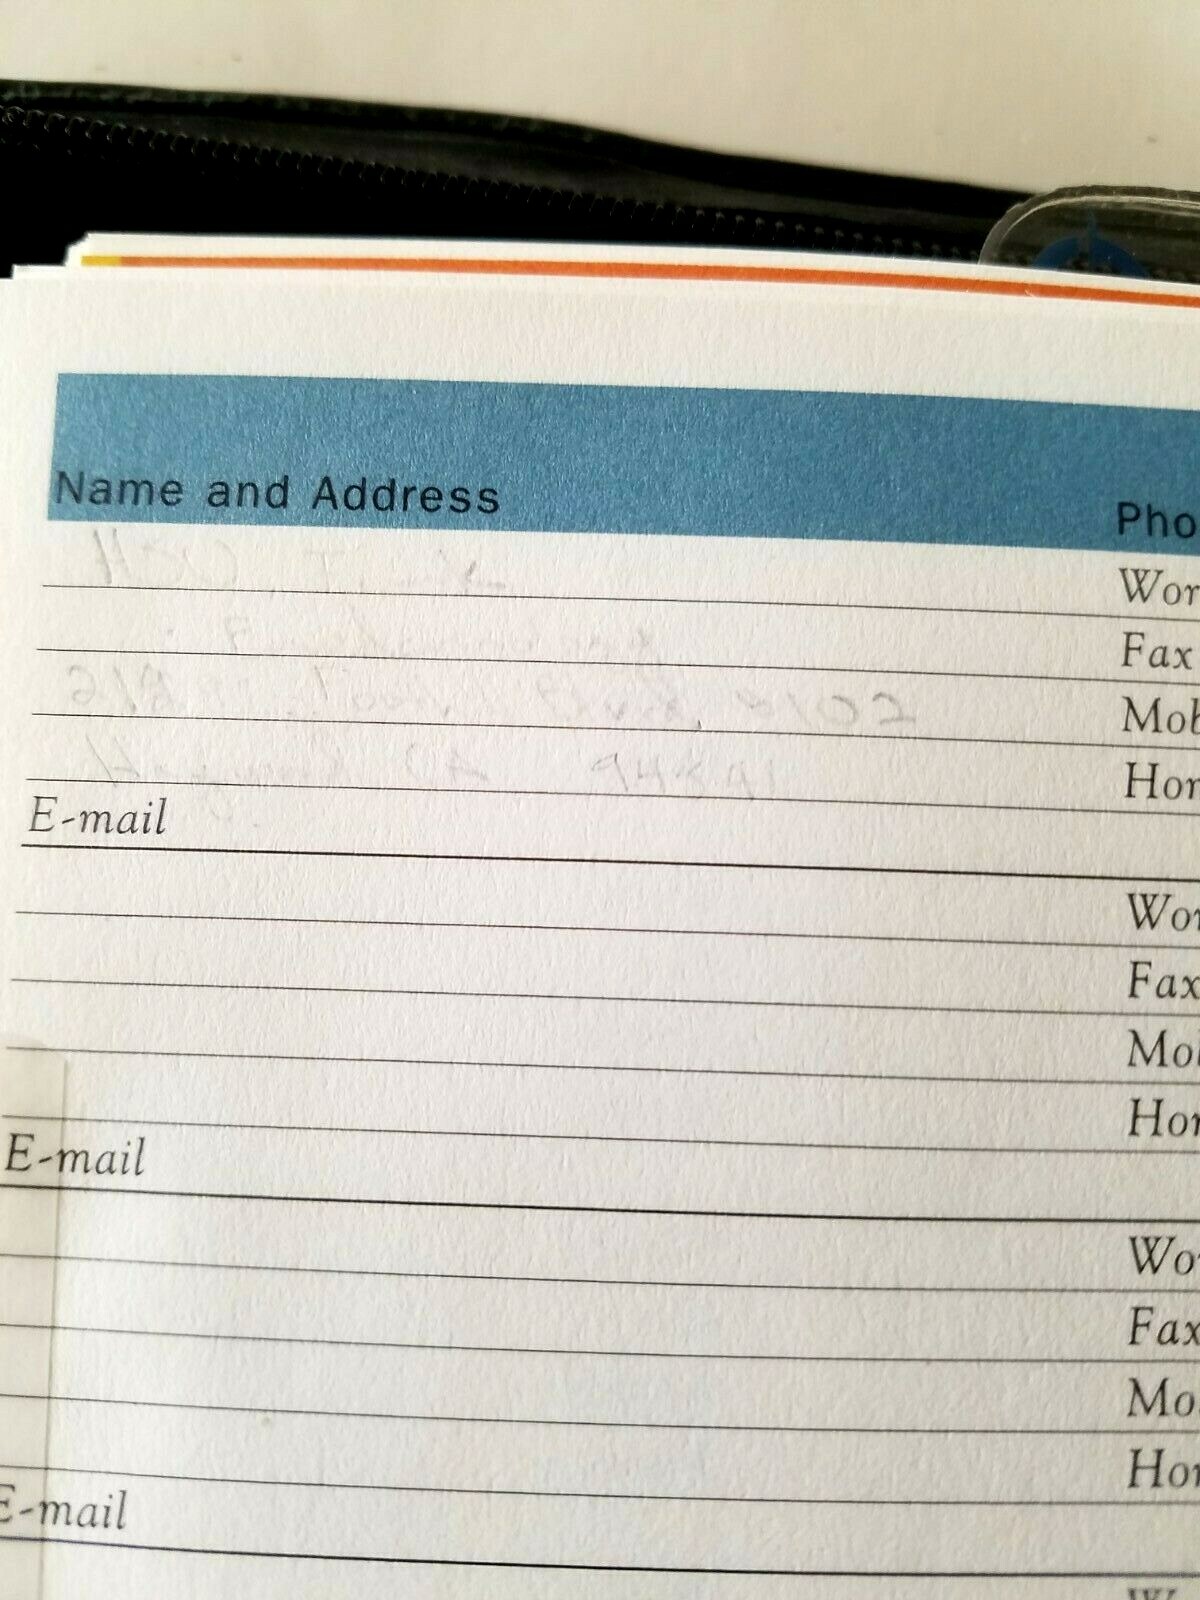 Name and Address
Pho
Wor
Fax
Mob
Hor
E-mail
Wor
Fax
Mo
Hor
E-mail
Wo
Fax
Mo
Hor
E-mail